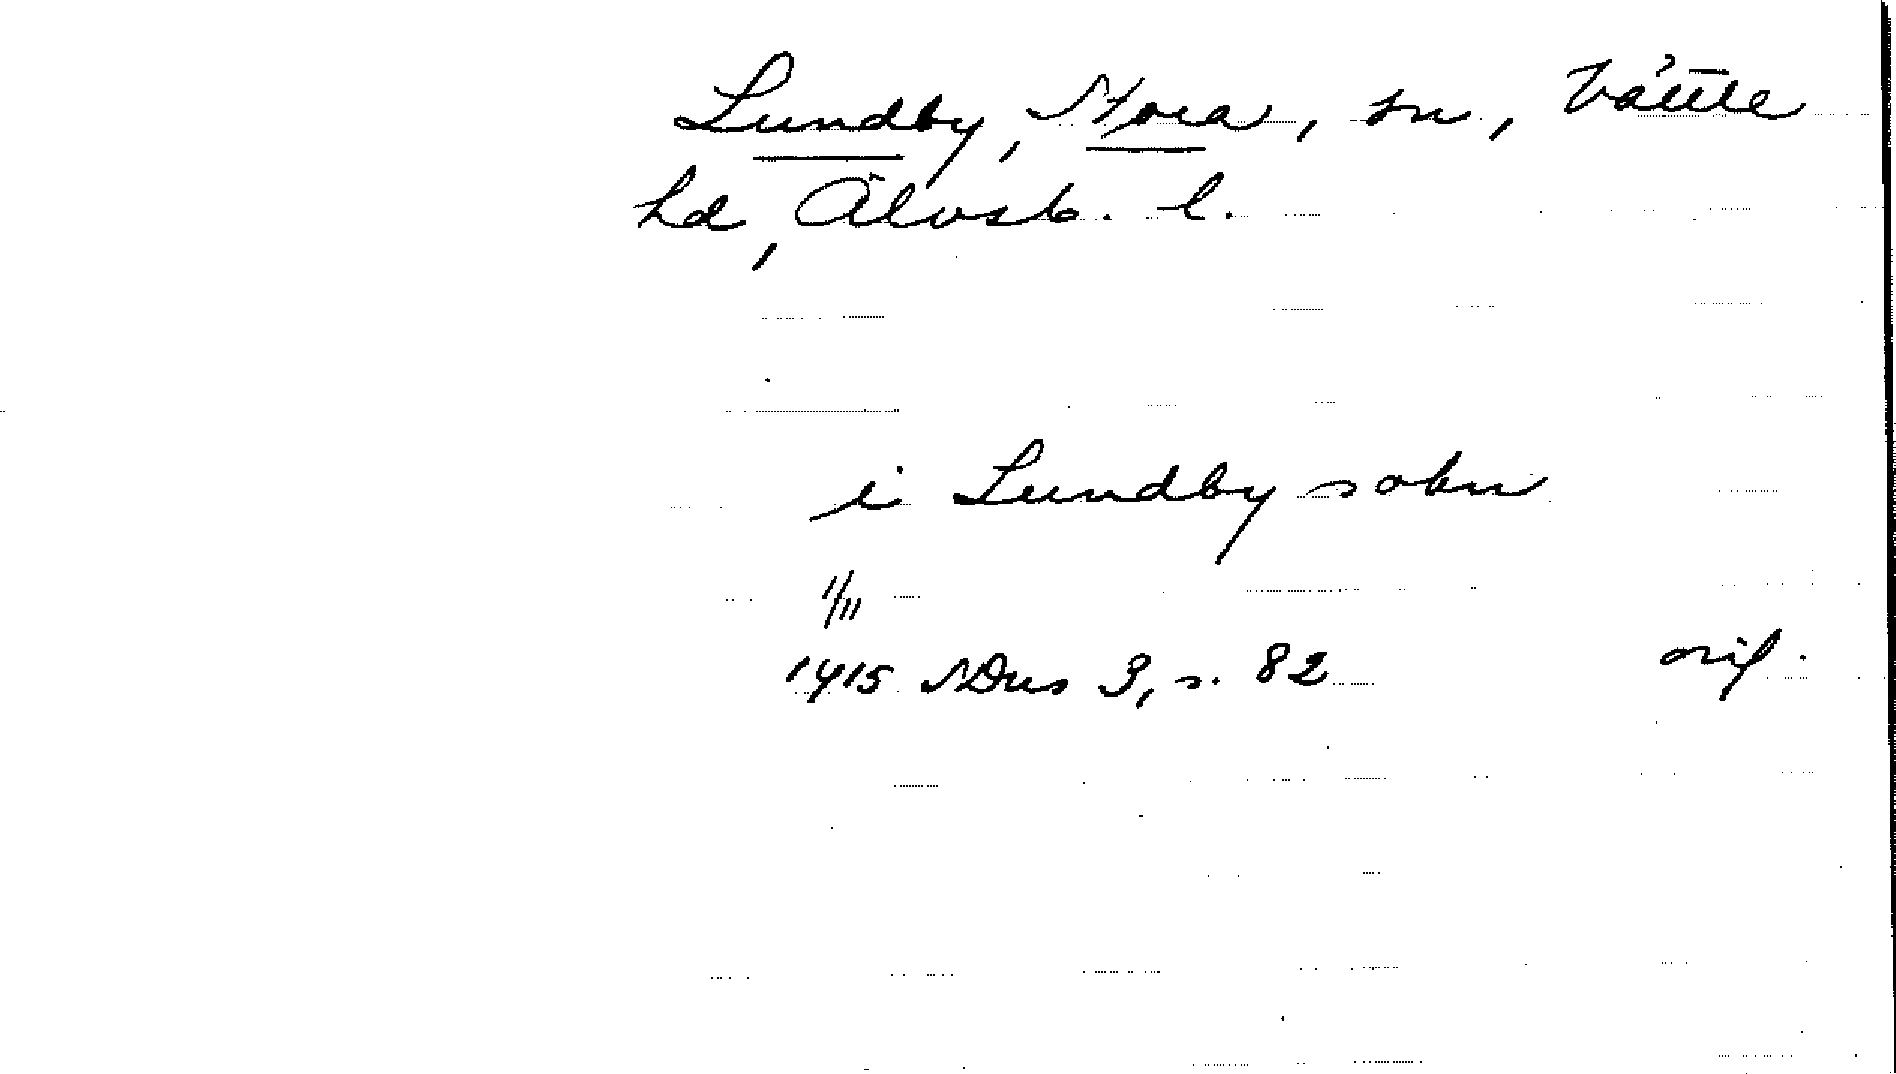 Lundby, Norra, sn, Vättle
hd, Älvsb. l.
i Lundby sokn
1/11
1415 SDns 3, s. 82 orig.